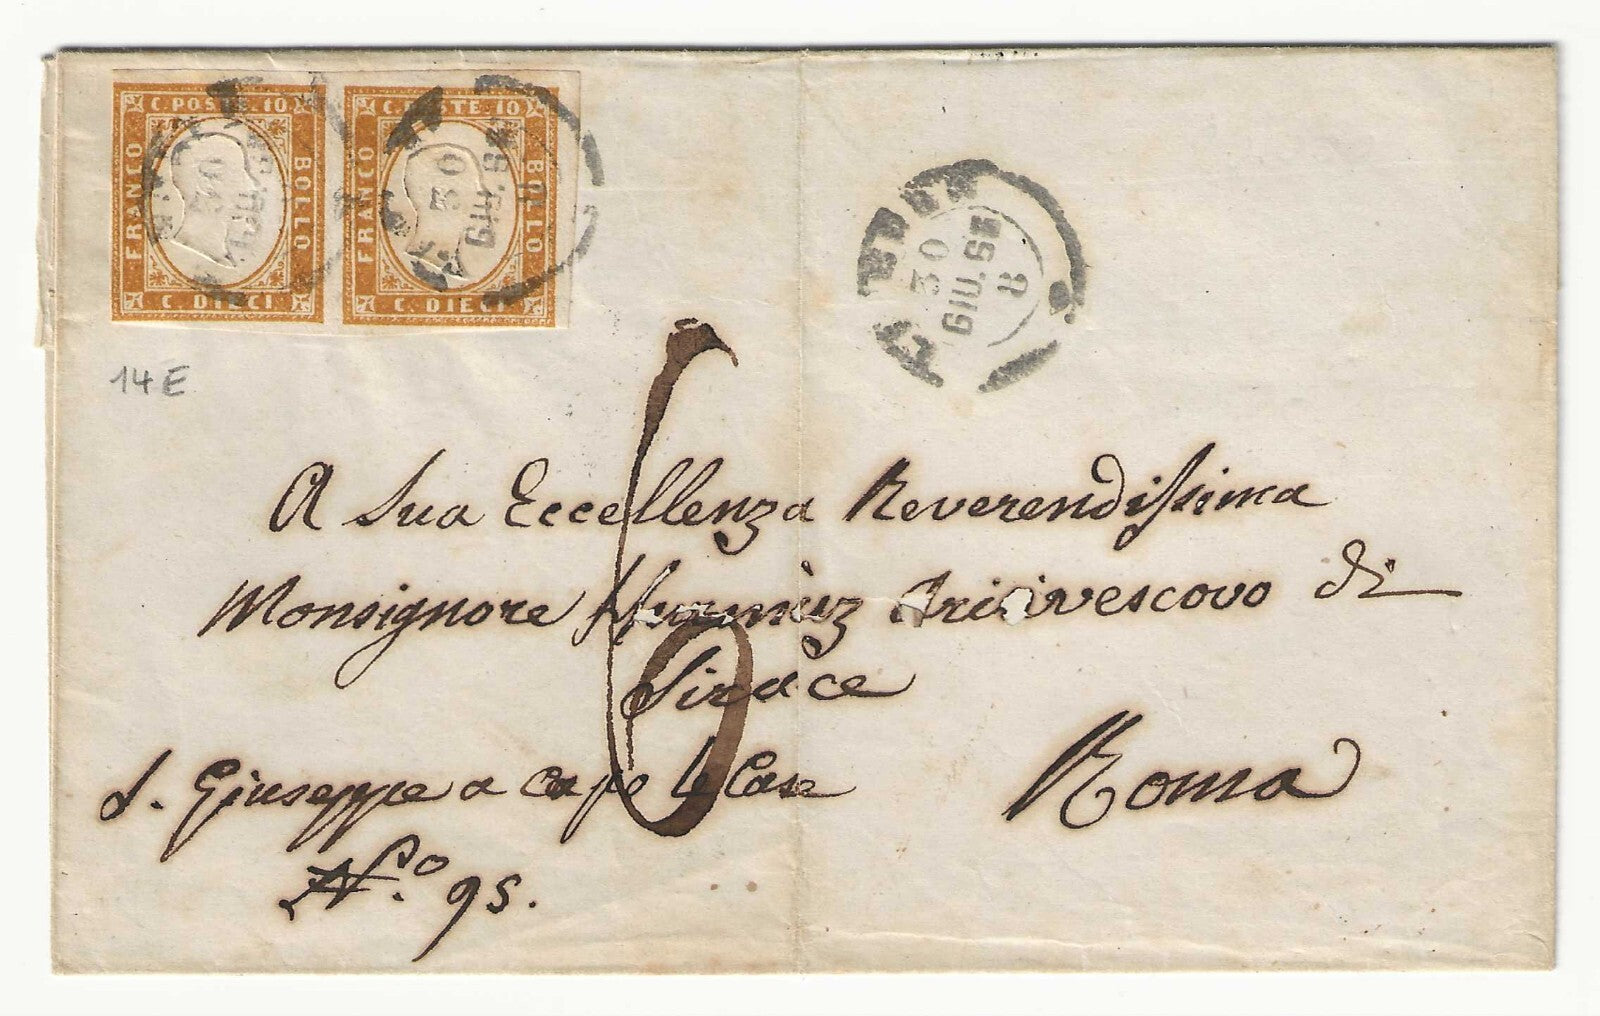 C. POSTE. 10
FRANCO
BOLLO
C. DIECI
C. POSTE. 10
FRANCO
BOLLO
C. DIECI
30
GIU. 62
30
GIU. 6
8
14 E
6
A Sua Eccellenza Reverendissima
Monsignore Hurmùz Arcivescovo di
Sirace
S. Giuseppe a capo le Case
Roma
N.º 95.